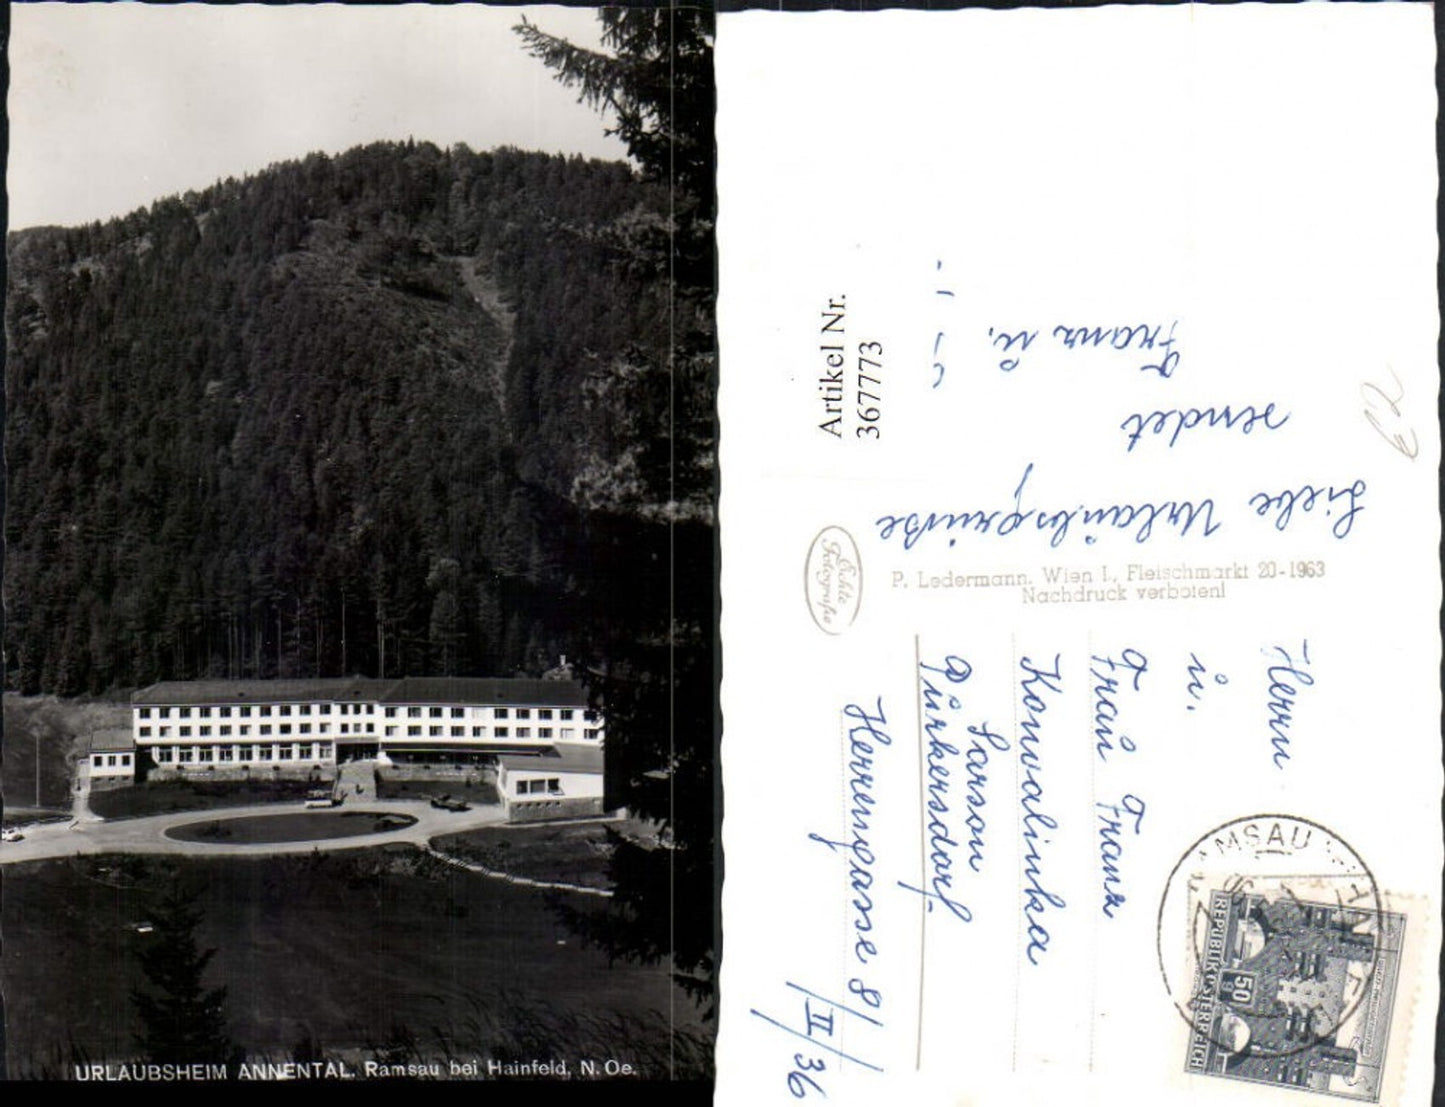 URLAUBSHEIM ANNENTAL. Ramsau bei Hainfeld, N. Oe.
Artikel Nr.
367773
Liebe Urlaubsgrüße
sendet
Franz u.
Echte
Fotografie
P. Ledermann, Wien I., Fleischmarkt 20-1963
Nachdruck verboten!
Herrn
u.
Frau Franz
Konvalinka
Sarson
Pürkersdorf
Herrengasse 8/II/36
REPUBLIK ÖSTERREICH
50
g